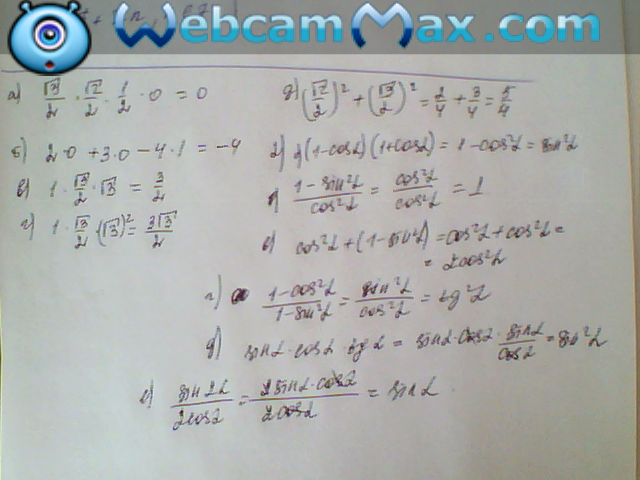 WebcamMax.com
а) √3/2 · √2/2 · 1/2 · 0 = 0
б) 2·0 + 3·0 − 4·1 = −4
в) 1 · √3/2 · √3 = 3/2
г) 1 · √3/2 · (√3)² = 3√3/2
д) (√2/2)² + (√3/2)² = 2/4 + 3/4 = 5/4
2) а) (1−cosα)(1+cosα) = 1 − cos²α = sin²α
б) (1−sin²α)/cos²α = cos²α/cos²α = 1
в) cos²α + (1−sin²α) = cos²α + cos²α =
= 2cos²α
г) (1−cos²α)/(1−sin²α) = sin²α/cos²α = tg²α
д) sinα · cosα · tgα = sinα · cosα · sinα/cosα = sin²α
е) sin2α/2cosα = 2sinα·cosα/2cosα = sinα